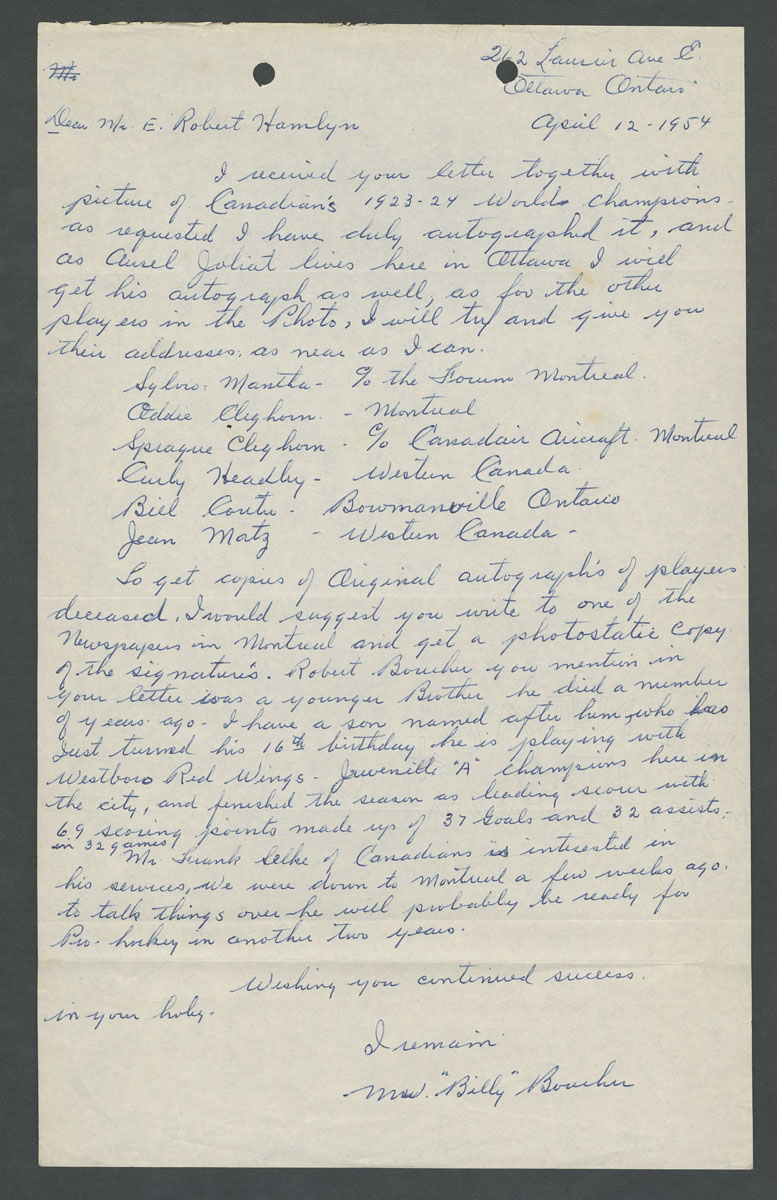 262 Laurier Ave E.
Mr.
Ottawa Ontario
Dear Mr. E. Robert Hamlyn
April 12 - 1954
I received your letter together with
picture of Canadian's 1923-24 World champions.
as requested I have duly autographed it, and
as Aurel Joliat lives here in Ottawa I will
get his autograph as well, as for the other
players in the Photo, I will try and give you
their addresses: as near as I can.
Sylvio: Mantha - c/o the Forum Montreal.
Oddie Cleghorn. - Montreal
Sprague Cleghorn - c/o Canadair Aircraft. Montreal
Curly Headley - Western Canada.
Bill Coutu - Bowmanville Ontario
Jean Matz - Western Canada -
To get copies of Original autograph's of players
deceased, I would suggest you write to one of the
Newspapers in Montreal and get a photostatic copy
of the signature's. Robert Boucher you mention in
your letter was a younger Brother he died a number
of years ago - I have a son named after him, who has
Just turned his 16th birthday he is playing with
Westboro Red Wings - Juvenille "A" champions here in
the city, and finished the season as leading scorer with
69 scoring points made up of 37 Goals and 32 assists.
in 32 games
Mr. Frank Selke of Canadians is interested in
his services, We were down to Montreal a few weeks ago.
to talk things over he will probably be ready for
Pro. hockey in another two years.
Wishing you continued success.
in your hoby.
I remain
"Billy" Boucher